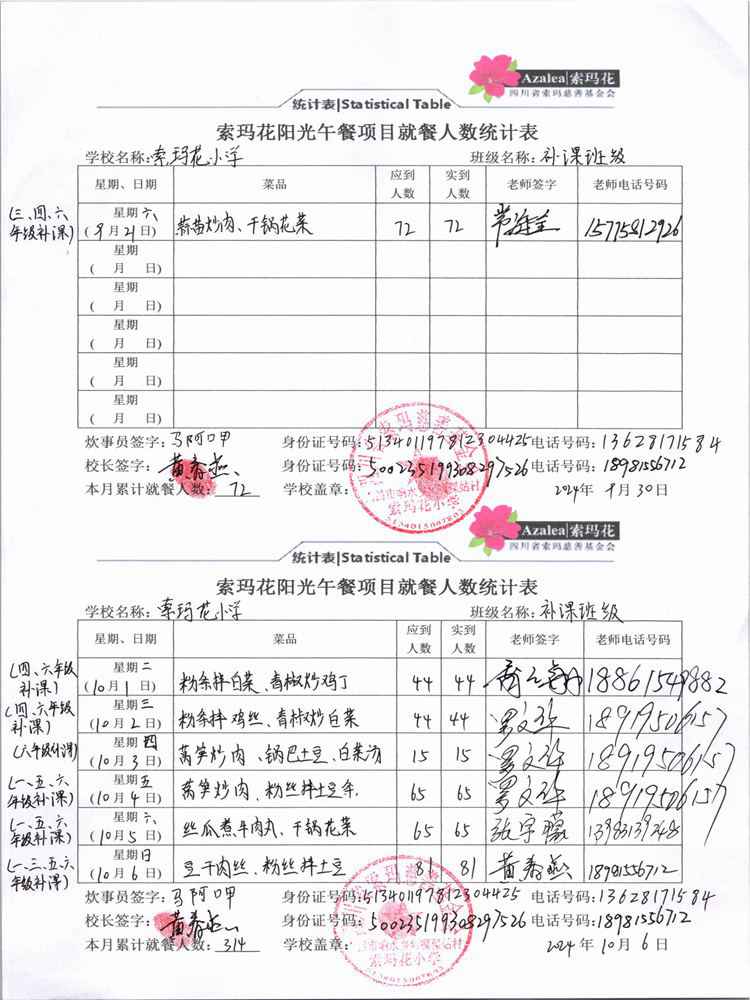 Azalea|索玛花
四川省索玛慈善基金会
统计表|Statistical Table
索玛花阳光午餐项目就餐人数统计表
学校名称:索玛花小学 班级名称:补课班级
星期、日期 菜品 应到人数 实到人数 老师签字 老师电话号码
(三、四、六年级补课) 星期六 (9月21日) 蒜苗炒肉、干锅花菜 72 72 15775812926
星期 (月 日)
星期 (月 日)
星期 (月 日)
星期 (月 日)
星期 (月 日)
炊事员签字:马阿呷 身份证号码:513401197812304425 电话号码:13628171584
校长签字:黄春燕 身份证号码:500235199308297526 电话号码:18981556712
本月累计就餐人数:72 学校盖章: 2024年9月30日
索玛花小学
5134015007803
Azalea|索玛花
四川省索玛慈善基金会
统计表|Statistical Table
索玛花阳光午餐项目就餐人数统计表
学校名称:索玛花小学 班级名称:补课班级
星期、日期 菜品 应到人数 实到人数 老师签字 老师电话号码
(四、六年级补课) 星期二 (10月1日) 粉条拌白菜、青椒炒鸡丁 44 44 18861549882
(四、六年级补课) 星期三 (10月2日) 粉条拌鸡丝、青椒炒白菜 44 44 罗文华 18919506157
(六年级补课) 星期四 (10月3日) 莴笋炒肉、锅巴土豆、白菜汤 15 15 罗文华 18919506157
(一、五、六年级补课) 星期五 (10月4日) 莴笋炒肉、粉丝拌土豆条. 65 65 罗文华 18919506157
(一、五、六年级补课) 星期六 (10月5日) 丝瓜煮牛肉丸、干锅花菜 65 65 张宇 13983139248
(一、三、五、六年级补课) 星期日 (10月6日) 豆干肉丝、粉丝拌土豆 81 81 黄春燕 18981556712
炊事员签字:马阿呷 身份证号码:513401197812304425 电话号码:13628171584
校长签字:黄春燕 身份证号码:500235199308297526 电话号码:18981556712
本月累计就餐人数:314 学校盖章: 2024年10月6日
索玛花小学
5134015007803